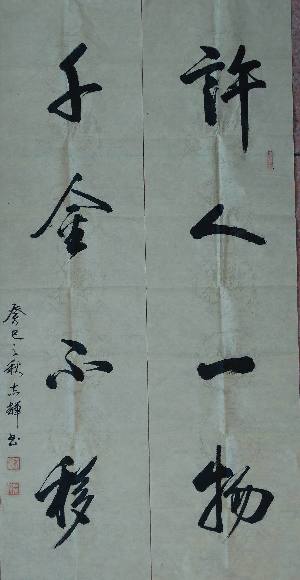 許人一物
千金不移
癸巳之秋志輝书